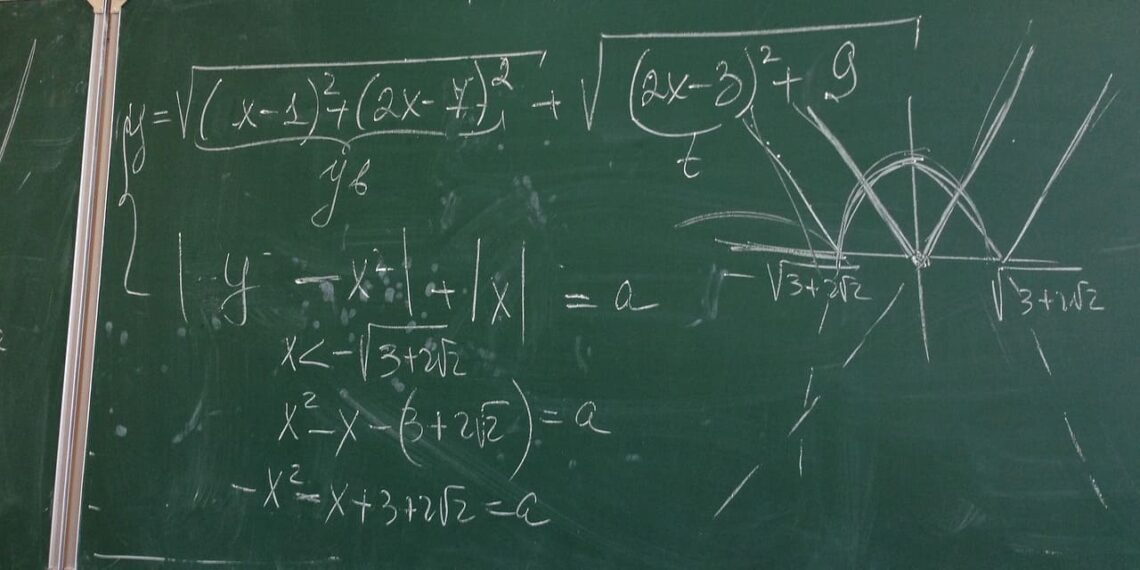 y = √((x-1)²+(2x-7)²) + √((2x-3)²+9)
yв
t
|y - x²| + |x| = a
-√3+2√2
√3+2√2
x < -√3+2√2
x² - x - (3+2√2) = a
-x² - x + 3+2√2 = a